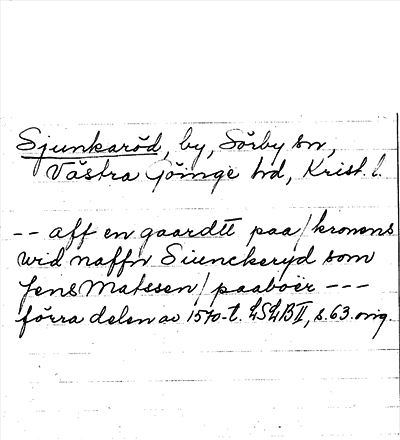 Sjunkaröd, by, Sörby sn,
Västra Göinge hd, Krist. l.
-- aff en gaardtt paa/kronens
wid naffn Siunckeryd som
Jens Matssen/paaboer ---
förra delen av 1570-t. LSLB II, s. 63. orig.